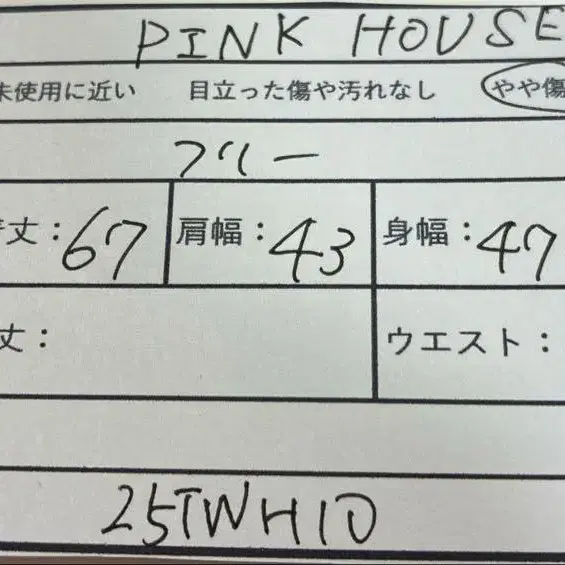 PINK HOUSE
未使用に近い 目立った傷や汚れなし やや傷
フリー
丈：67 肩幅：43 身幅：47
丈： ウエスト：
25TWH10